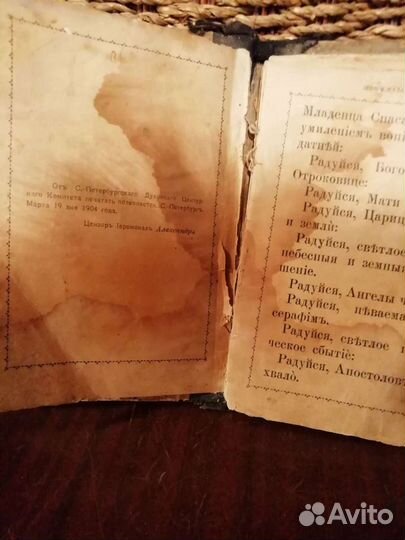 Отъ С.-Петербургскаго Духовнаго Цензур-
наго Комитета печатать позволяется. С.-Петербургъ.
Марта 19 дня 1904 года.
Цензоръ Іеромонахъ Александръ
Младенца Спас
умиленіемъ вопі
датнѣй:
Радуйся, Бого
Отроковице:
Радуйся, Мати
Радуйся, Цариц
и землѝ:
Радуйся, свѣтлое
небесныя и земныя
шеніе.
Радуйся, Ангелы ч
Радуйся, пѣваема
серафімъ.
Радуйся, свѣтлое
ческое сбытіе:
Радуйся, Апостоловъ
хвало̀.
Avito